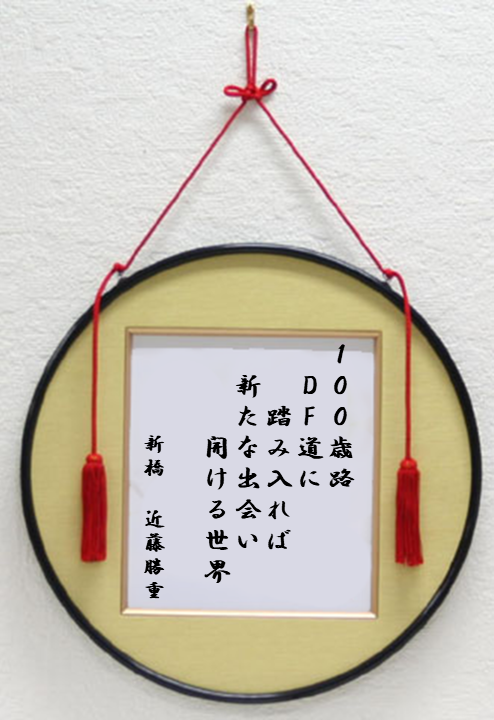 100歳路
DF道に
踏み入れば
新たな出会い
開ける世界
新橋 近藤勝重